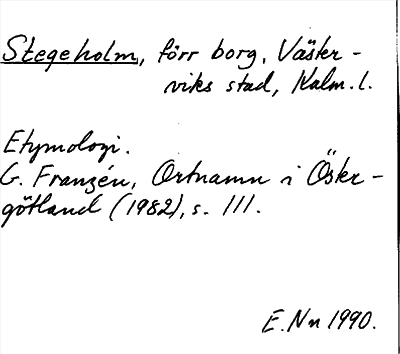 Stegeholm, förr borg, Väster-
viks stad, Kalm. l.
Etymologi.
G. Franzén, Ortnamn i Öster-
götland (1982), s. 111.
E. Nn 1990.